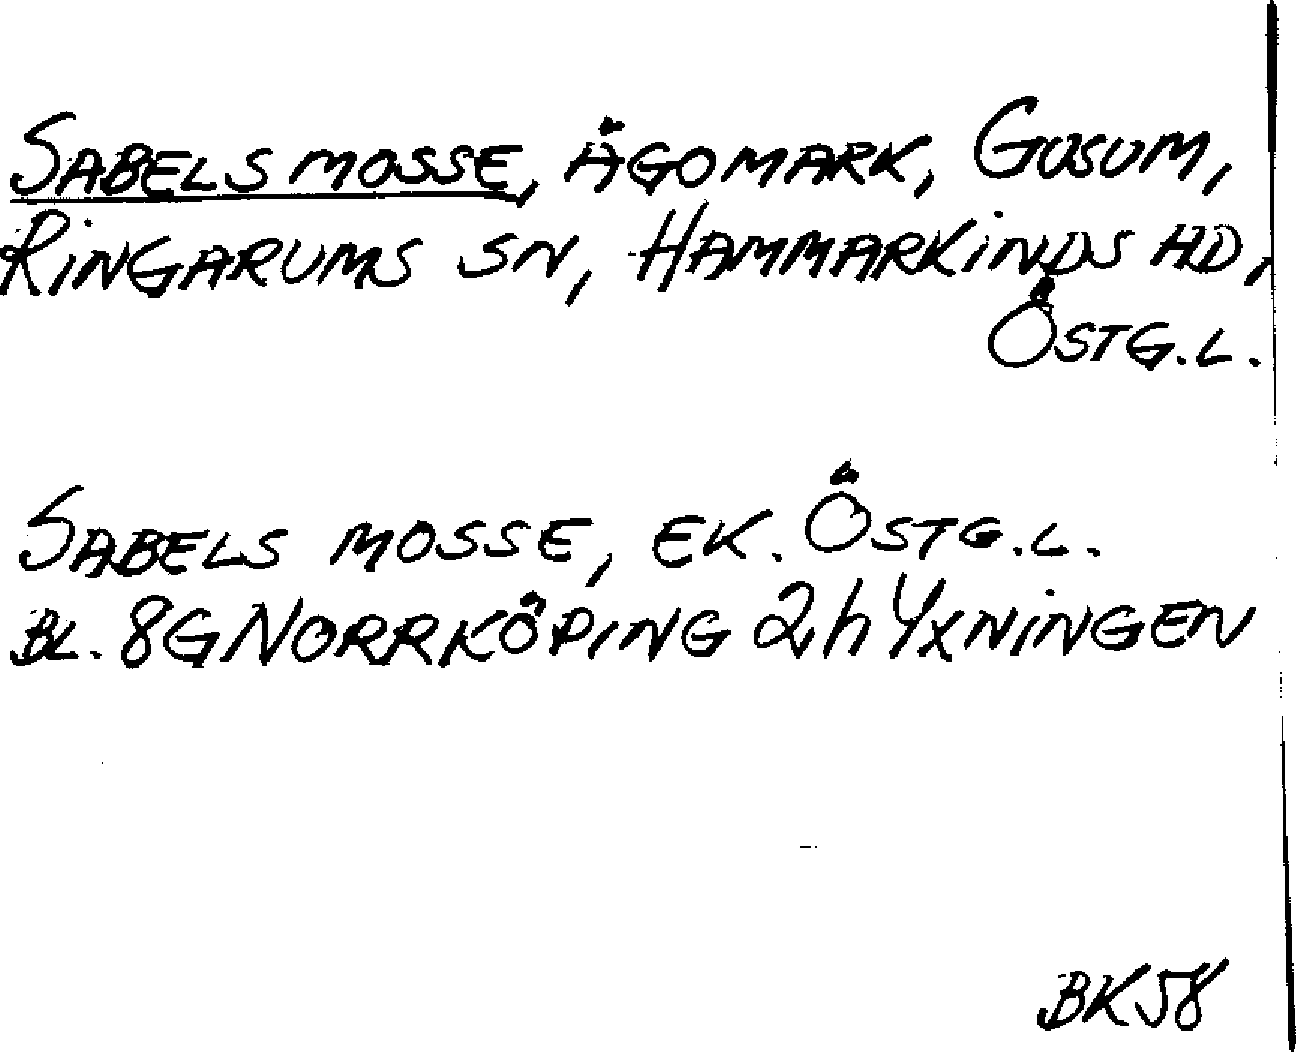 SABELS MOSSE, ÄGOMARK, GUSUM,
RINGARUMS SN, HAMMARKINDS HD,
ÖSTG.L.
SABELS MOSSE, EK. ÖSTG.L.
BL. 8G NORRKÖPING 2h YXNINGEN
BK58